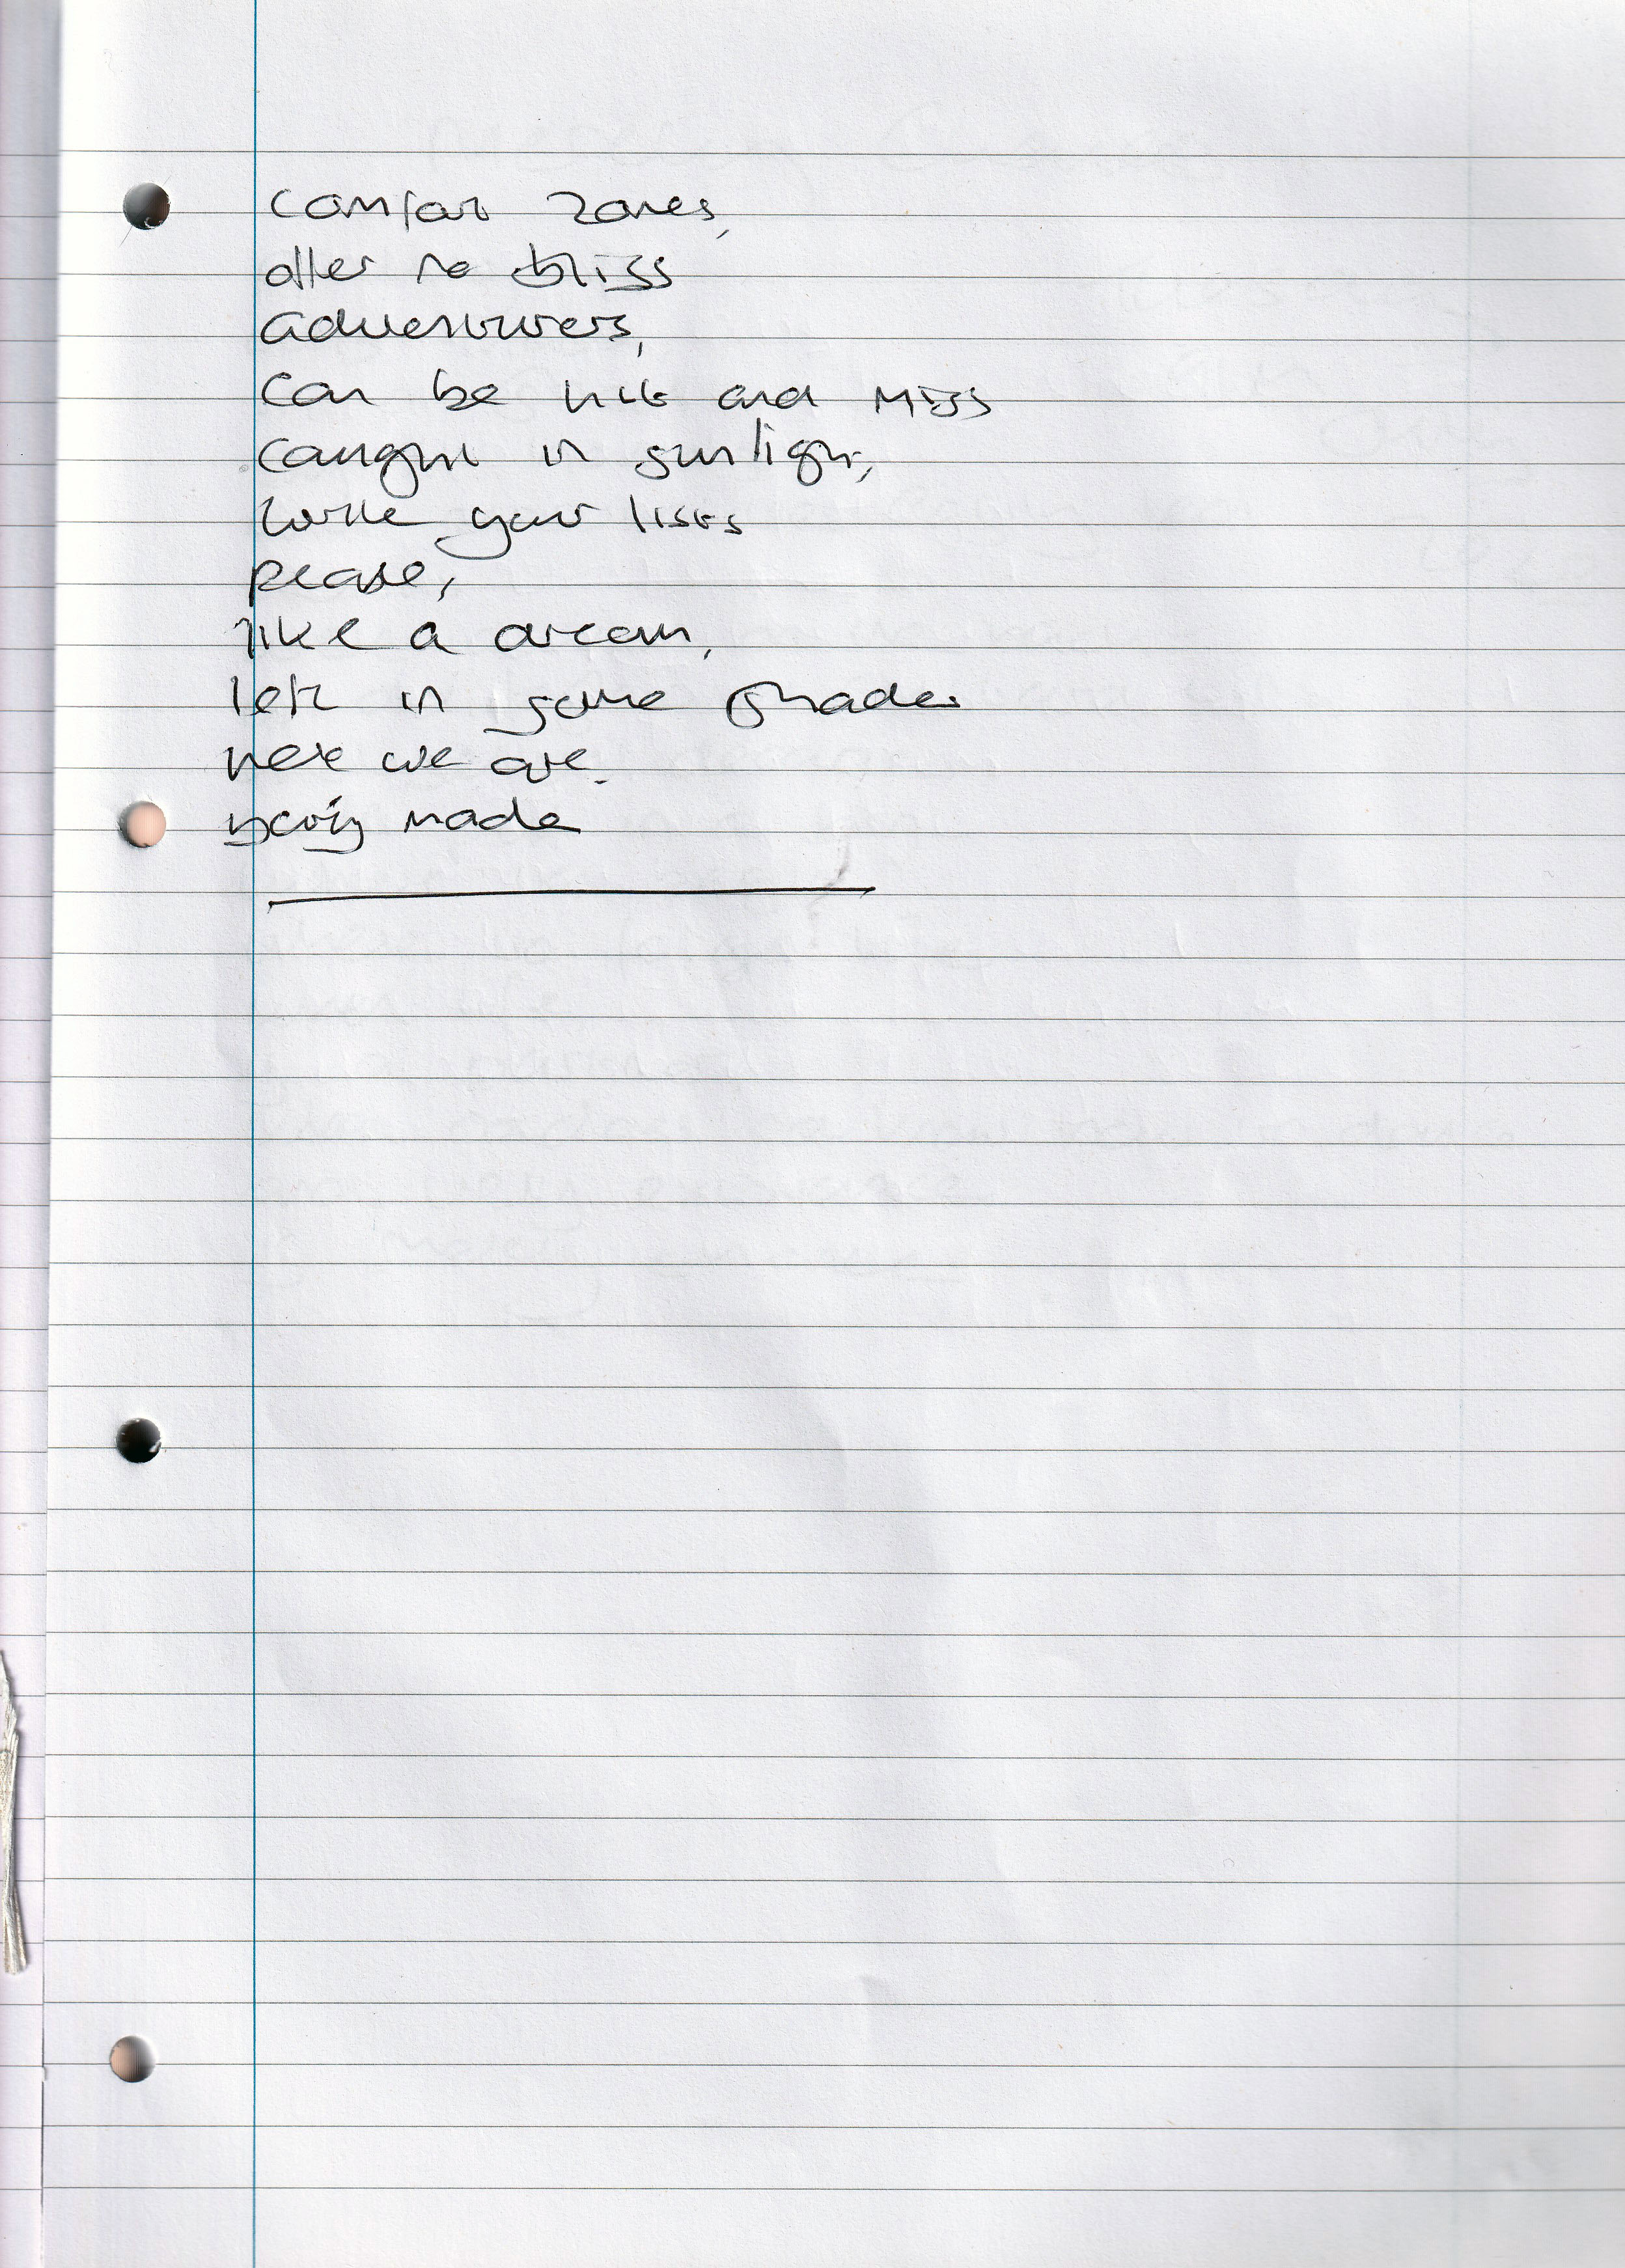 comfort zones,
offer no bliss
adventurers,
can be hit and miss
caught in sunlight,
write your lists
please,
like a dream,
left in some shade.
here we are.
being made